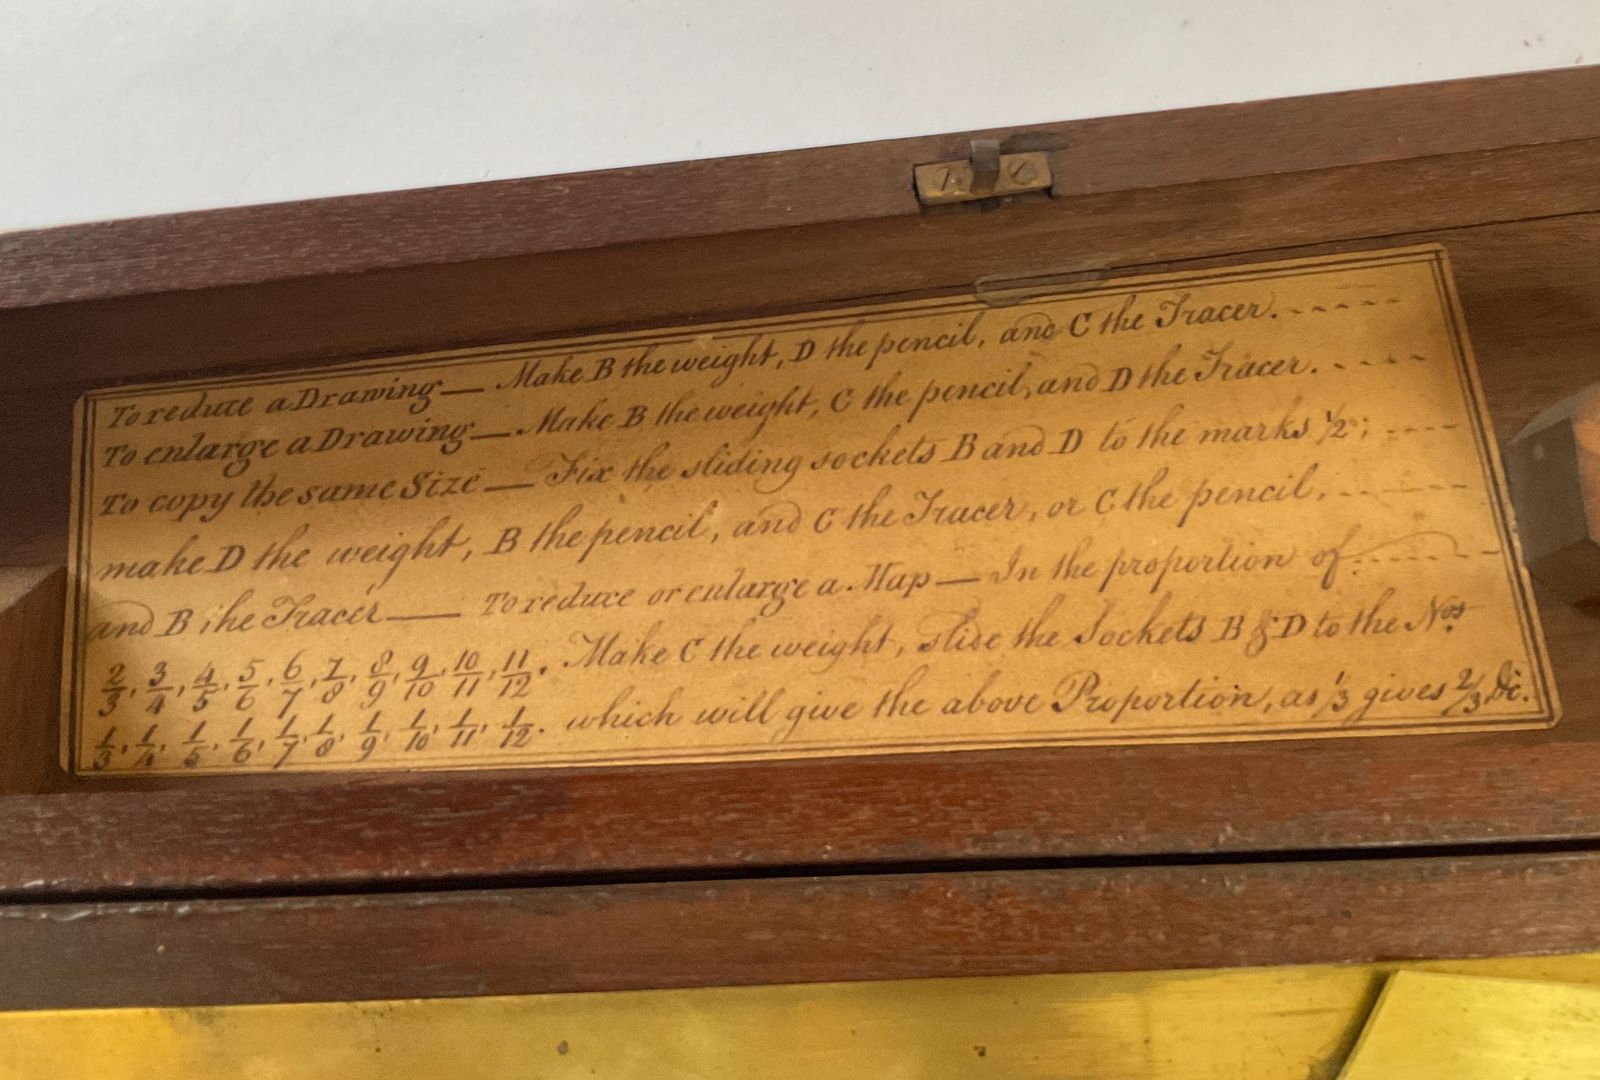 To reduce a Drawing — Make B the weight, D the pencil, and C the Tracer. - - - - -
To enlarge a Drawing — Make B the weight, C the pencil, and D the Tracer. - - - -
To copy the same Size — Fix the sliding sockets B and D to the marks ½; - - - -
make D the weight, B the pencil, and C the Tracer, or C the pencil, - - - - - -
and B the Tracer — To reduce or enlarge a Map — In the proportion of - - - - - -
2/3, 3/4, 4/5, 5/6, 6/7, 7/8, 8/9, 9/10, 10/11, 11/12. Make C the weight, slide the Sockets B & D to the Nos.
1/3, 1/4, 1/5, 1/6, 1/7, 1/8, 1/9, 1/10, 1/11, 1/12. which will give the above Proportion, as 1/3 gives 2/3, &c.